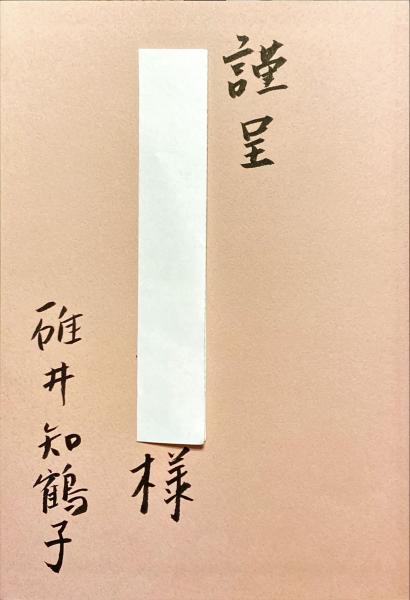 謹呈
様
碓井知鶴子